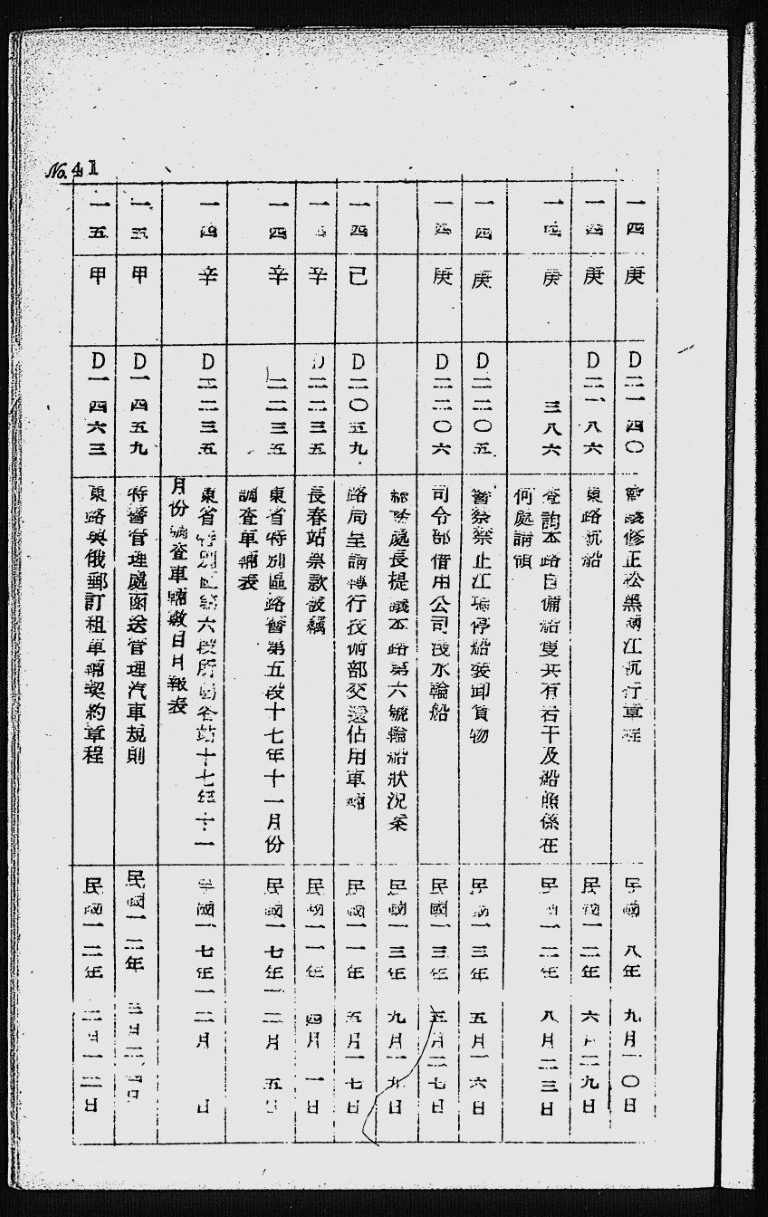 No. 41
一四 庚 D二一四〇 修正松黑兩江航行章程 民國 八年 九月一〇日
一四 庚 D二一八六 東路航船 民國一二年 六月二九日
一四 庚 三八六 查詢本路自備船隻共有若干及船照係在
何處請領 民國一二年 八月二三日
一四 庚 D二二〇五 警察禁止江瑞停船裝卸貨物 民國一三年 五月一六日
一四 庚 D二二〇六 司令部借用公司淺水輪船 民國一三年 五月二七日
處長提議本路第六號輪船狀況案 民國一三年 九月一九日
一四 已 D二〇五九 路局呈請轉行技術部交還佔用車輛 民國一一年 五月一七日
一四 辛 D二二三五 長春站票款被竊 民國一一年 四月 一日
一四 辛 二二三五 東省特別區路警第五段十七年十一月份
調查車輛表 民國一七年一二月 五日
一四 辛 D二二三五 東省特別區第六段所西谷站十七年十一
月份調查車輛數目月報表 民國一七年一二月 日
一五 甲 D一四五九 特警管理處函送管理汽車規則 民國一二年 三月二四日
一五 甲 D一四六三 東路與俄郵訂租車輛契約章程 民國一二年 二月一二日